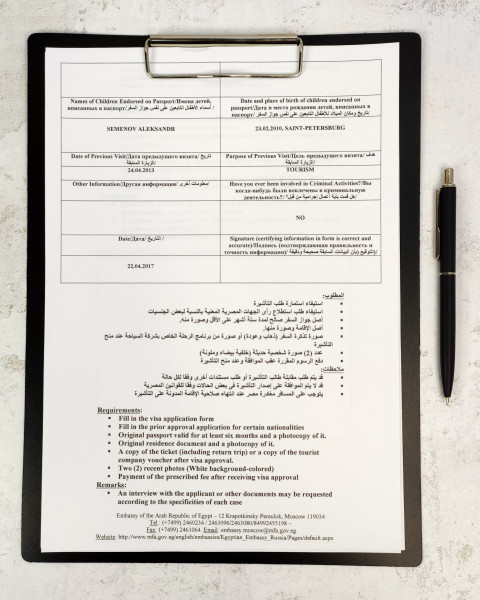 Namns of Children Endorsed on Passport/Имена детей,
вписанных в паспорт/ أسماء الأطفال التابعين على نفس جواز السفر /
Date and place of birth of children endorsed on
passport/Дата и место рождения детей, вписанных в
паспорт/ تاريخ ومكان الميلاد للأطفال التابعين على نفس جواز السفر/
SEMENOV ALEKSANDR
23.02.2010, SAINT-PETERSBURG
Date of Previous Visit/Дата предыдущего визита/ تاريخ
الزيارة السابقة/
Purpose of Previous Visit/Цель предыдущего визита/ هدف
الزيارة السابقة/
24.04.2013
TOURISM
Other Information/Другая информация/ معلومات أخرى/
Have you ever been involved in Criminal Activities?/Вы
когда-нибудь были вовлечены в криминальную
деятельность?/ هل قمت بأية أعمال إجرامية من قبل؟/
NO
Date/Дата/ التاريخ /
Signature (certifying information in form is correct and
accurate)/Подпись (подтверждающая правильность и
точность информации)/ التوقيع (بأن البيانات السابقة صحيحة ودقيقة)/
22.04.2017
المطلوب:
استيفاء استمارة طلب التأشيرة
استيفاء طلب استطلاع رأى الجهات المصرية المعنية بالنسبة لبعض الجنسيات
أصل جواز السفر صالح لمدة ستة أشهر على الأقل وصورة منه.
أصل الإقامة وصورة منها.
صورة تذكرة السفر (ذهاب وعودة) أو صورة من برنامج الرحلة الخاص بشركة السياحة عند منح
التأشيرة
عدد (2) صورة شخصية حديثة (خلفية بيضاء وملونة)
دفع الرسوم المقررة عقب الموافقة وعند منح التأشيرة
ملاحظات:
قد يتم طلب مقابلة طالب التأشيرة أو طلب مستندات أخرى وفقا لكل حالة
قد لا يتم الموافقة على إصدار التأشيرة في بعض الحالات وفقا للقوانين المصرية
يتوجب على المسافر مغادرة مصر عند انتهاء صلاحية الإقامة المدونة على التأشيرة
Requirements:
▪ Fill in the visa application form
▪ Fill in the prior approval application for certain nationalities
▪ Original passport valid for at least six months and a photocopy of it.
▪ Original residence document and a photocopy of it.
▪ A copy of the ticket (including return trip) or a copy of the tourist
company voucher after visa approval.
▪ Two (2) recent photos (White background-colored)
▪ Payment of the prescribed fee after receiving visa approval
Remarks:
▪ An interview with the applicant or other documents may be requested
according to the specificities of each case
Embassy of the Arab Republic of Egypt – 12 Krapotkinsky Pereulok, Moscow 119034
Tel : (+7499) 2460234 / 2463096/2463080/84992455198 –
Fax: (+7499) 2461064 Email: embassy.moscow@mfa.gov.eg
Website: http://www.mfa.gov.eg/english/embassies/Egyptian_Embassy_Russia/Pages/default.aspx